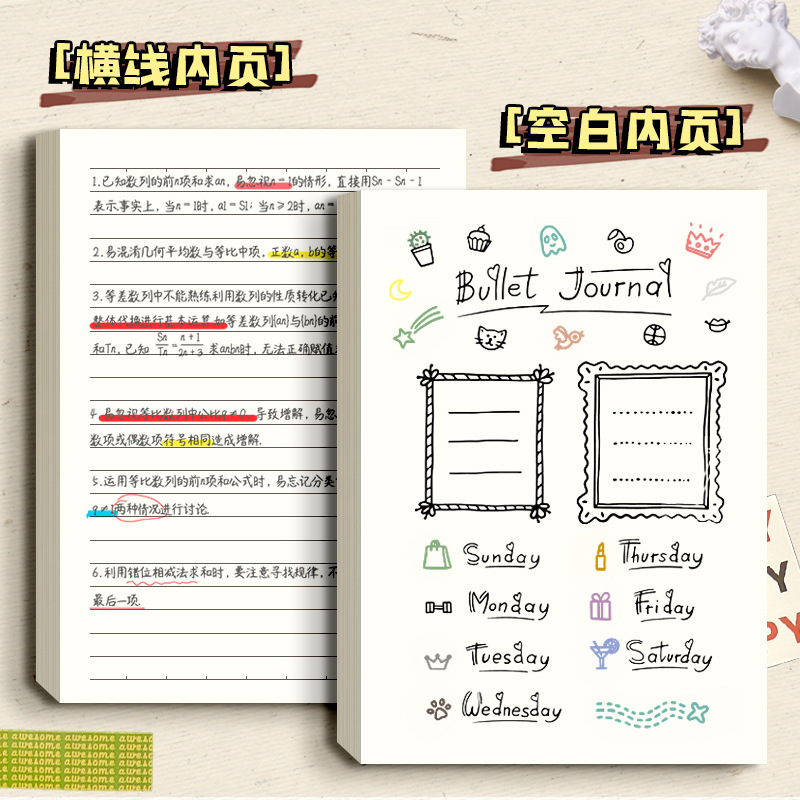 [横线内页]
[空白内页]
1.已知数列的前n项和求an,易忽视n=1的情形,直接用Sn-Sn-1
表示事实上,当n=1时,a1=S1;当n≥2时,an=
2.易混淆几何平均数与等比中项,正数a,b的等
3.等差数列中不能熟练利用数列的性质转化已
整体代换进行基本运算如等差数列{an}与{bn}的前
和Tn,已知 Sn/Tn=n+1/2n+3 求anbn时,无法正确赋值
4 易忽视等比数列中公比q≠0 导致增解,易忽
数项或偶数项符号相同造成增解.
5.运用等比数列的前n项和公式时,易忘记分类
q≠1两种情况进行讨论
6.利用错位相减法求和时,要注意寻找规律,不
最后一项.
Bullet Journal
Sunday
Thursday
Monday
Friday
Tuesday
Saturday
Wednesday
awesome awesome awesome